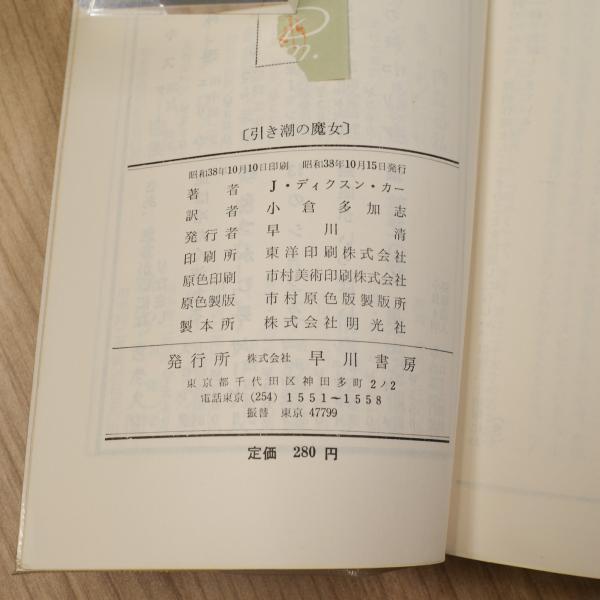 〔引き潮の魔女〕
昭和38年10月10日印刷　昭和38年10月15日発行
著者　J・ディクスン・カー
訳者　小倉多加志
発行者　早川清
印刷所　東洋印刷株式会社
原色印刷　市村美術印刷株式会社
原色製版　市村原色版製版所
製本所　株式会社明光社
発行所　株式会社　早川書房
東京都千代田区神田多町2ノ2
電話東京(254)1551〜1558
振替　東京47799
定価　280円